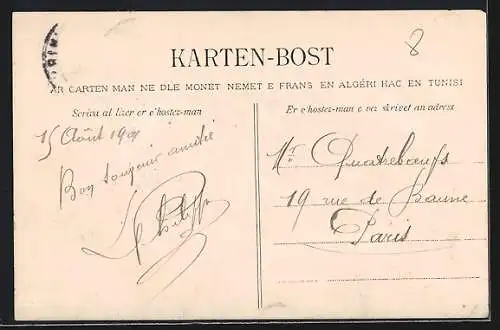 KARTEN-BOST
8
AR CARTEN MAN NE DLE MONET NEMET E FRANS EN ALGÉRI HAC EN TUNISI
Scriva al lizer er c'hostez-man
Er c'hostez-man e vez skrivet an adress
15 Août 190
Bon toujour amitié
Philipp
Mr Quatrebœufs
19 rue de Beaune
Paris